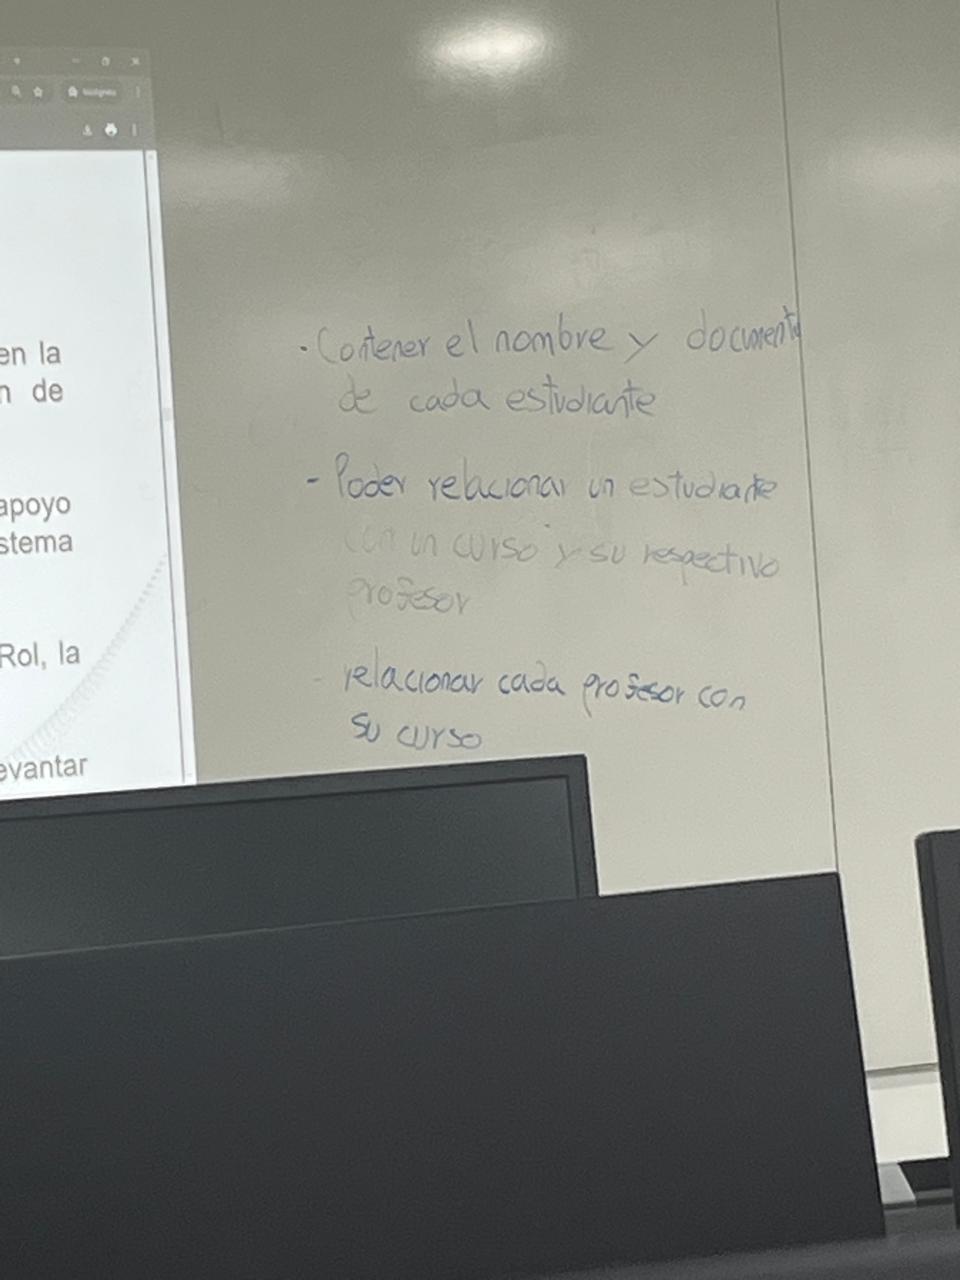 en la
n de
apoyo
stema
Rol, la
evantar
· Contener el nombre y documento
de cada estudiante
- Poder relacionar un estudiante
con un curso y su respectivo
profesor
- relacionar cada profesor con
su curso